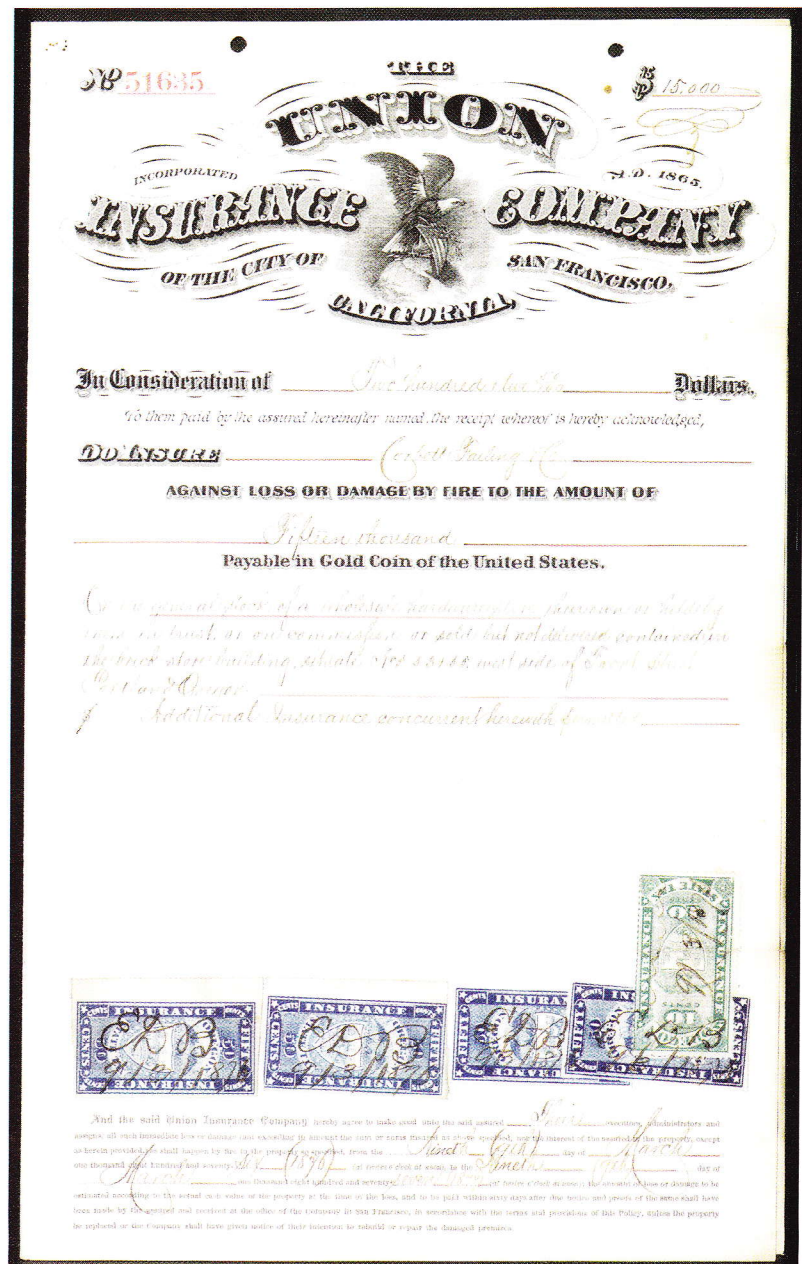 No 51635
$ 15.000
THE
UNION
INCORPORATED A.D. 1865.
INSURANCE COMPANY
OF THE CITY OF SAN FRANCISCO,
CALIFORNIA,
In Consideration of Two hundred Dollars,
To them paid by the assured hereinafter named, the receipt whereof is hereby acknowledged,
DO INSURE Corbett Failing & Co
AGAINST LOSS OR DAMAGE BY FIRE TO THE AMOUNT OF
Fifteen thousand
Payable in Gold Coin of the United States.
general stock of a wholesale
in trust, or on commission or sold but not delivered contained in
the brick store building, situate west side of Front Street
Portland Oregon
$ Additional Insurance concurrent herewith
STATE TAX
INSURANCE
10
CENTS
INSURANCE
FIFTY
50
CENTS
INSURANCE
FIFTY
50
CENTS
INSURANCE
FIFTY
50
CENTS
INSURANCE
FIFTY
50
CENTS
And the said Union Insurance Company hereby agree to make good unto the said assured Their executors, administrators and
assigns, all such immediate loss or damage not exceeding in amount the sum or sums insured as above specified, nor the interest of the assured in the property, except
as herein provided, as shall happen by fire to the property so specified, from the Nineth (9th) day of March
one thousand eight hundred and seventy six (1876) (at twelve o'clock at noon), to the Nineth (9th) day of
March one thousand eight hundred and seventy seven (at twelve o'clock at noon), the amount of loss or damage to be
estimated according to the actual cash value of the property at the time of the loss, and to be paid within sixty days after due notice and proofs of the same shall have
been made by the assured and received at the office of the Company in San Francisco, in accordance with the terms and provisions of this Policy, unless the property
be replaced or the Company shall have given notice of their intention to rebuild or repair the damaged premises.